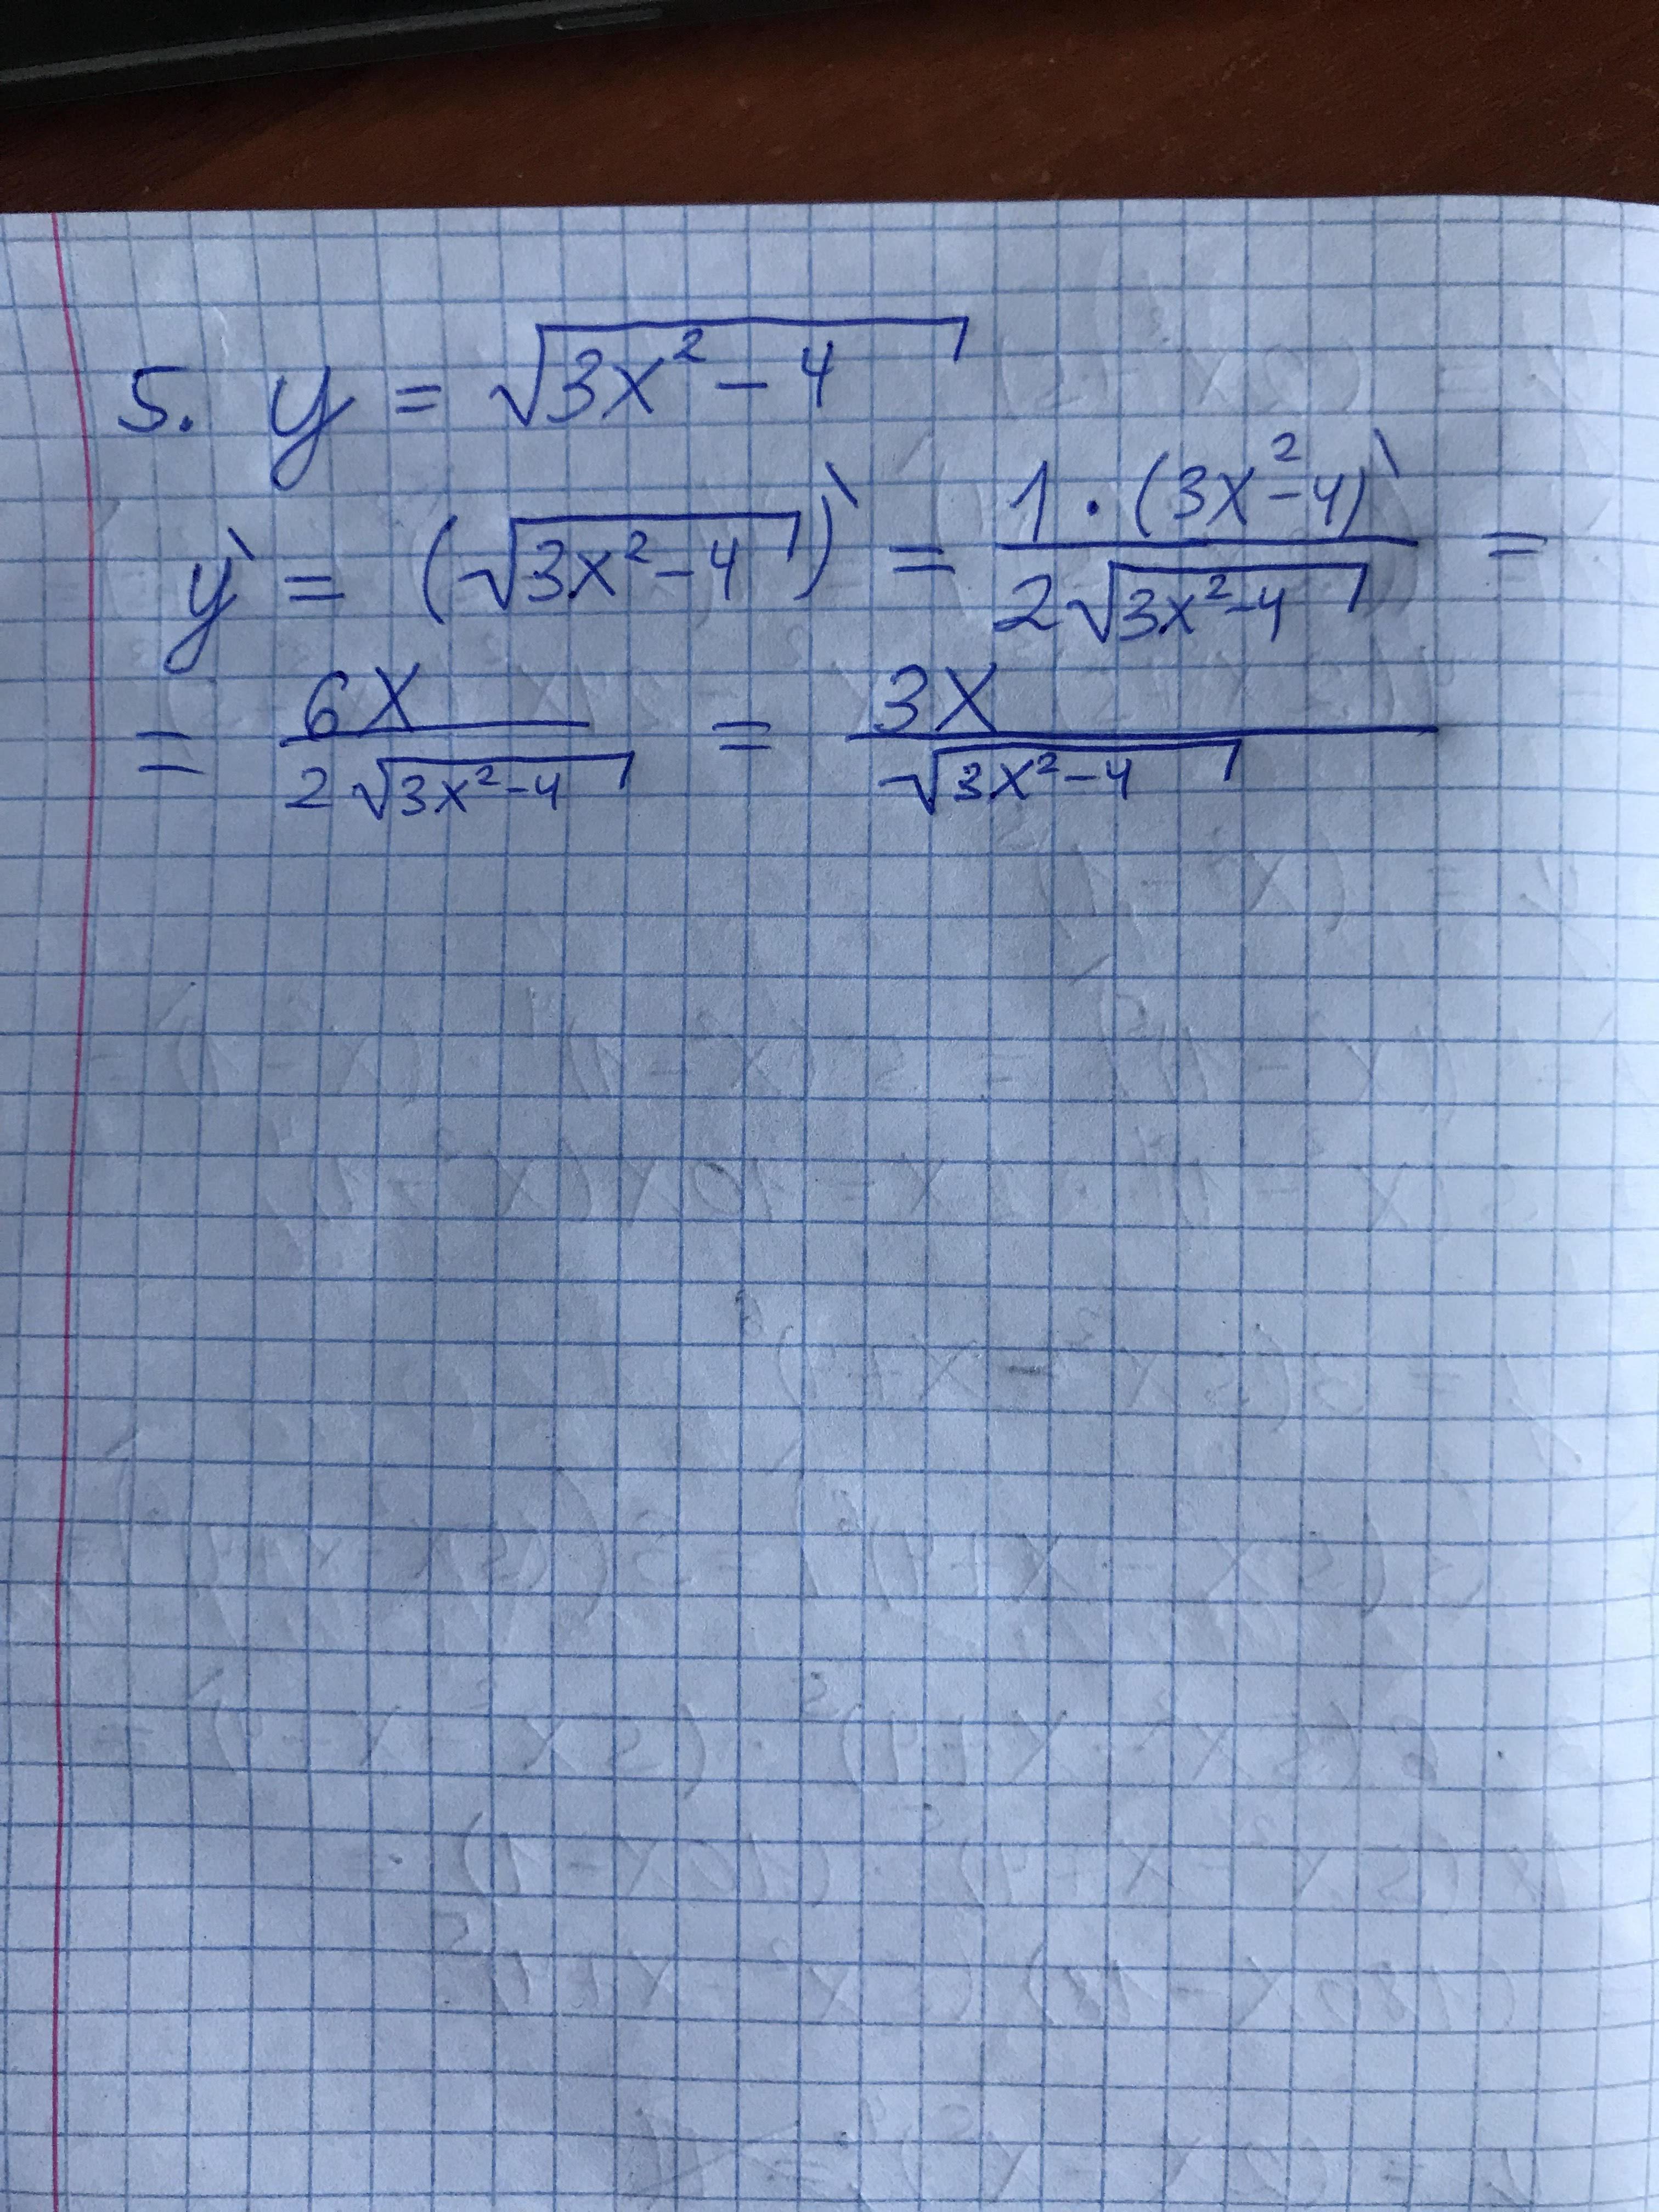 5. y = √(3x² - 4)
y` = (√(3x²-4))` = 1 · (3x²-4)` / 2√(3x²-4) =
= 6x / 2√(3x²-4) = 3x / √(3x²-4)